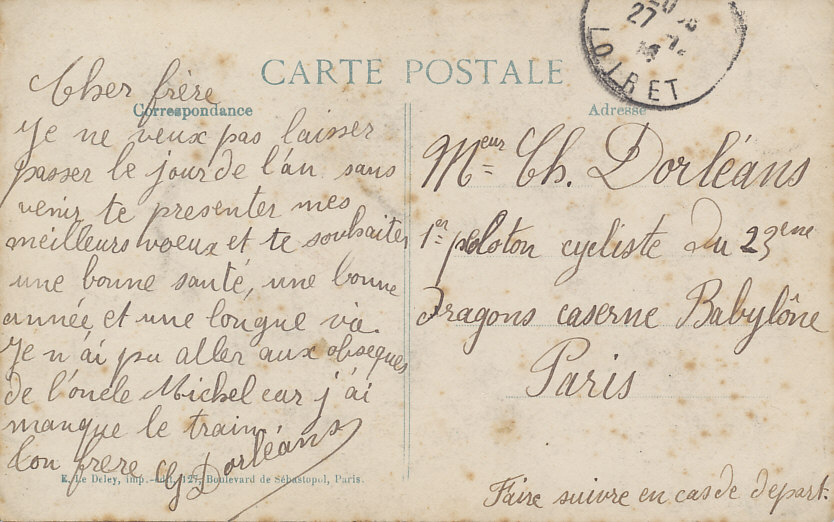 CARTE POSTALE
Correspondance
Cher frère
Je ne veux pas laisser
passer le jour de l'an sans
venir te presenter mes
meilleurs voeux et te souhaiter
une bonne santé, une bonne
année et une longue vie.
Je n'ai pu aller aux obseques
de l'oncle Michel car j'ai
manque le train
Ton frère Dorléans
E. Le Deley, imp.-édit., 127, Boulevard de Sébastopol, Paris.
27
LOIRET
Adresse
Meur Ch. Dorléans
1er peloton cycliste du 23eme
dragons caserne Babylône
Paris
Faire suivre en cas de depart.